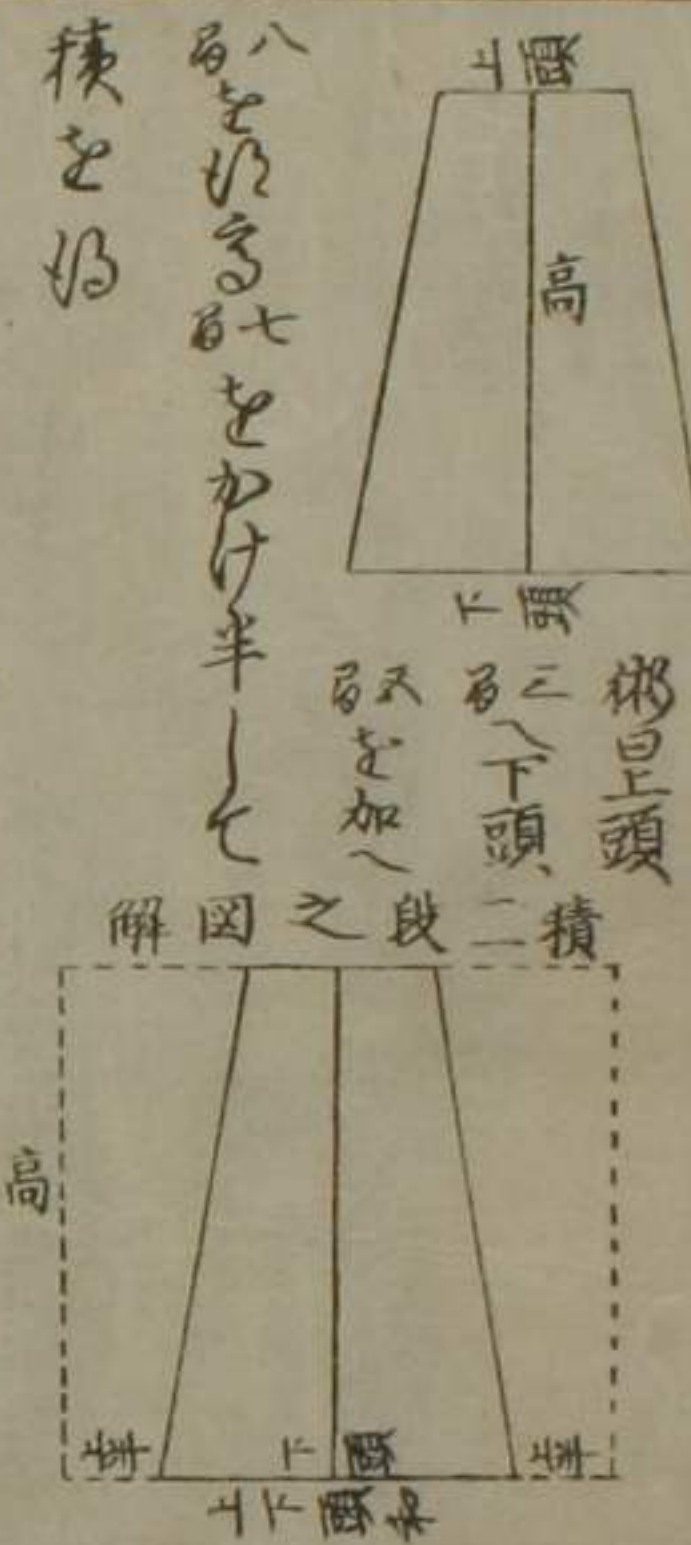 上頭
高
下頭
術曰上頭
三百へ下頭、
五百を加へ
八百を得高七百をかけ半して
積を得
積二段之図解
高
上半
下頭
上半
上下頭和